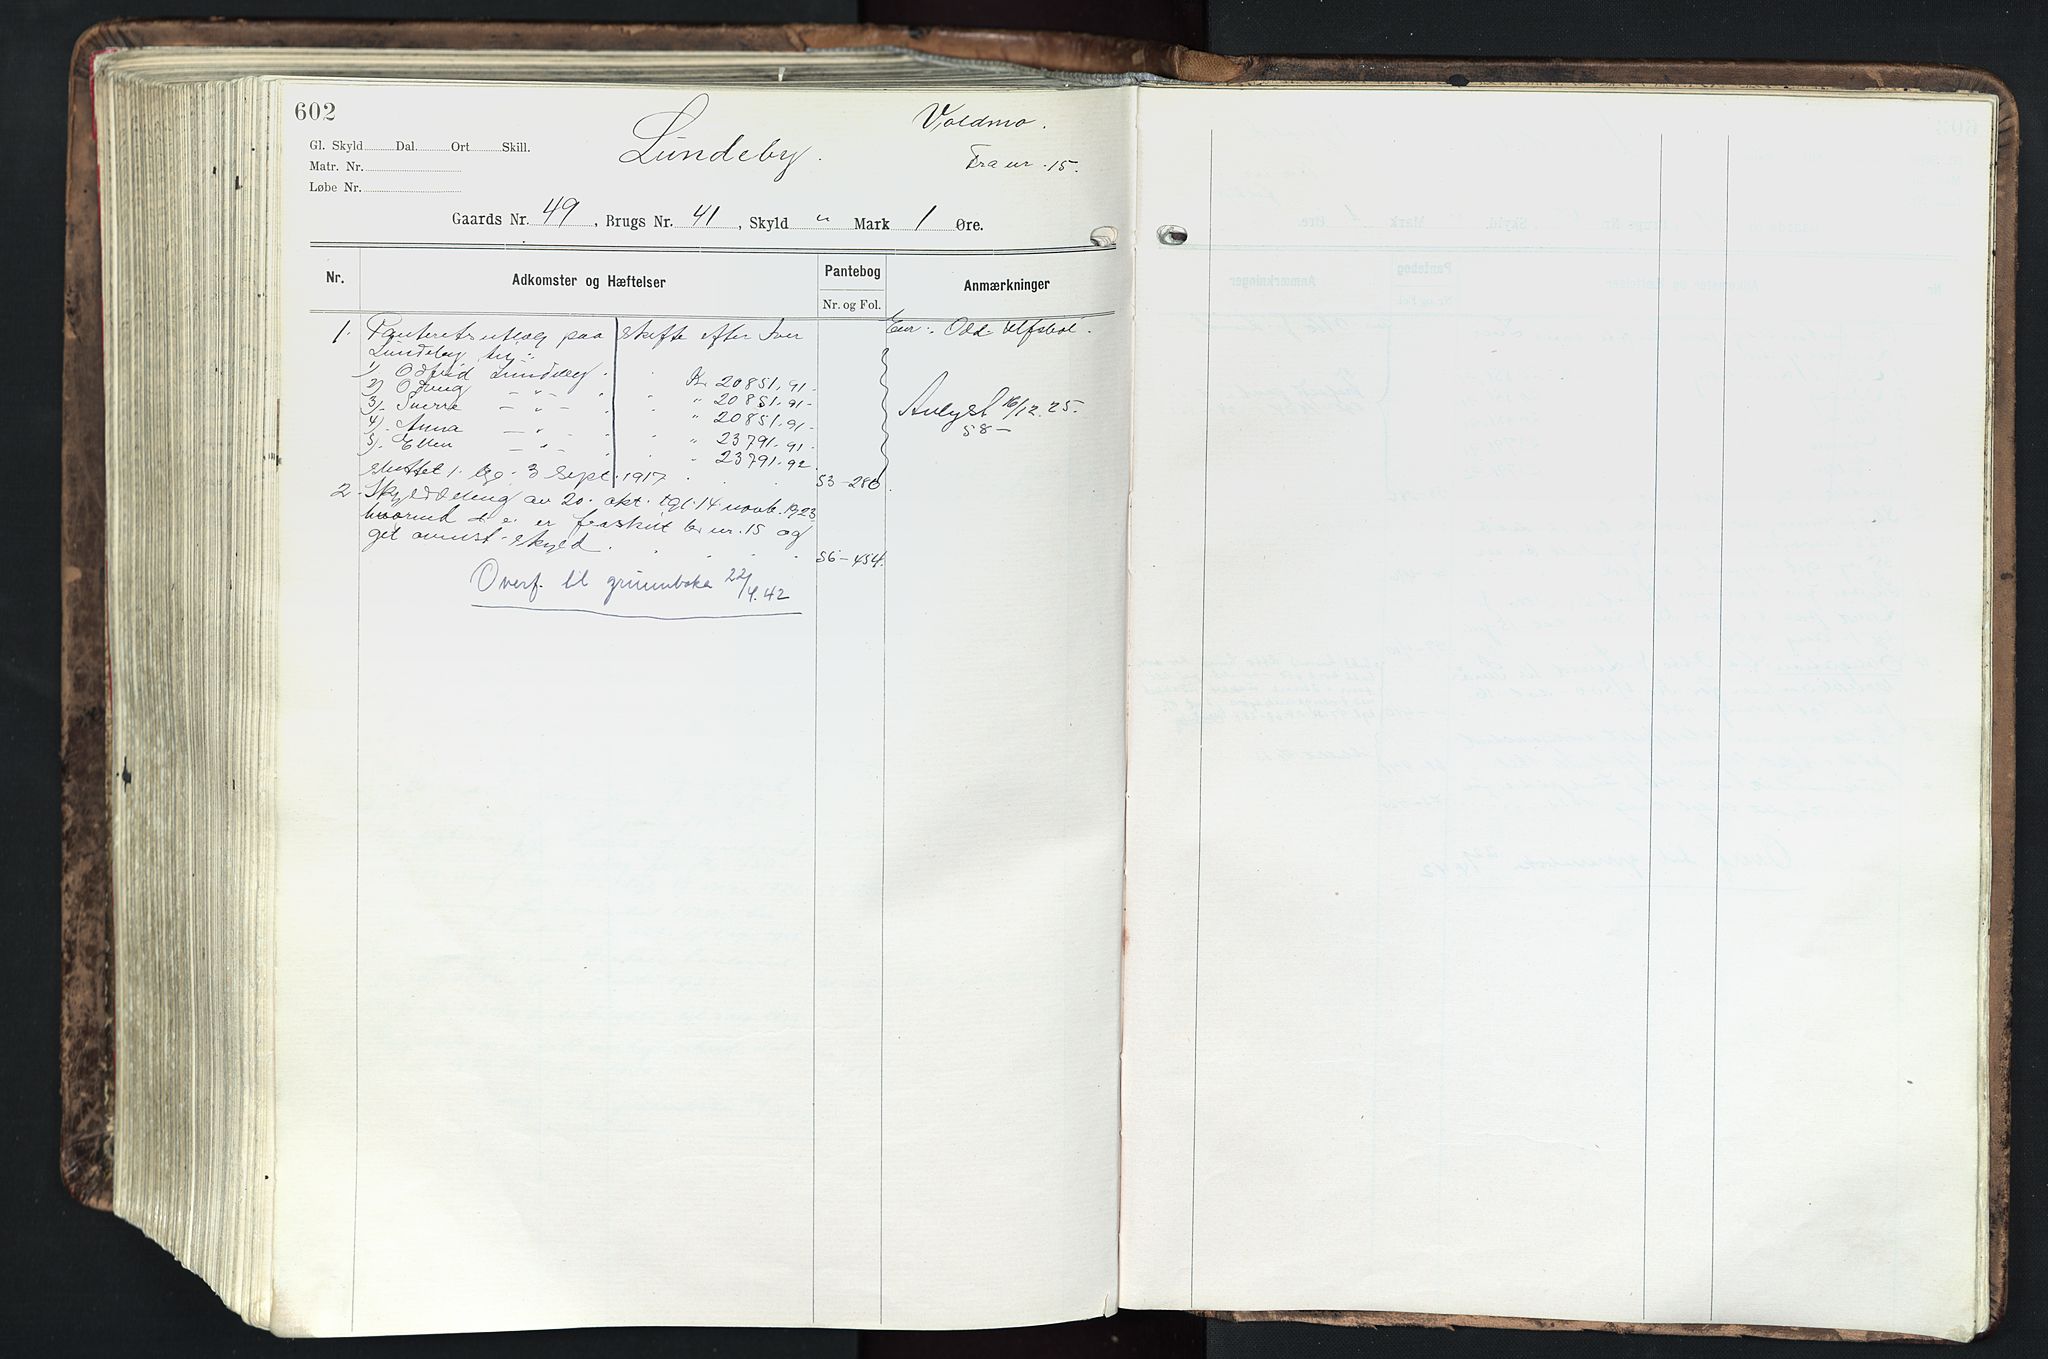 602
Gl. Skyld Dal. Ort Skill.
Matr. Nr.
Løbe Nr.
Lundeby.
Voldmo.
Fra nr. 15.
Gaards Nr. 49, Brugs Nr. 41, Skyld " Mark 1 Øre.
Nr. Adkomster og Hæftelser Pantebog Nr. og Fol. Anmærkninger
1. Panteretsutlæg paa skifte efter Iver
Lundeby til:
1) Odfrid Lundeby . . Kr 20851.91.
2) Oddveig — " — . . " 20851.91.
3) Sverre — " — . . " 20851.91.
4) Anna — " — . . " 23791.91.
5) Ellen — " — . . " 23791.92.
sluttet 1. tgl. 3 Sept. 1917 . . . 53-280.
Eier: Odd Ulfsbøl.
Avlyst 16/12.25.
58—
2. Skylddeling av 20. okt. tgl. 14 novb. 1923
hvorved d. e. er fraskilt br. nr. 15 og
git ovenst. skyld. . . . . 56-454.
Overf. til grunnboka 22/4.42